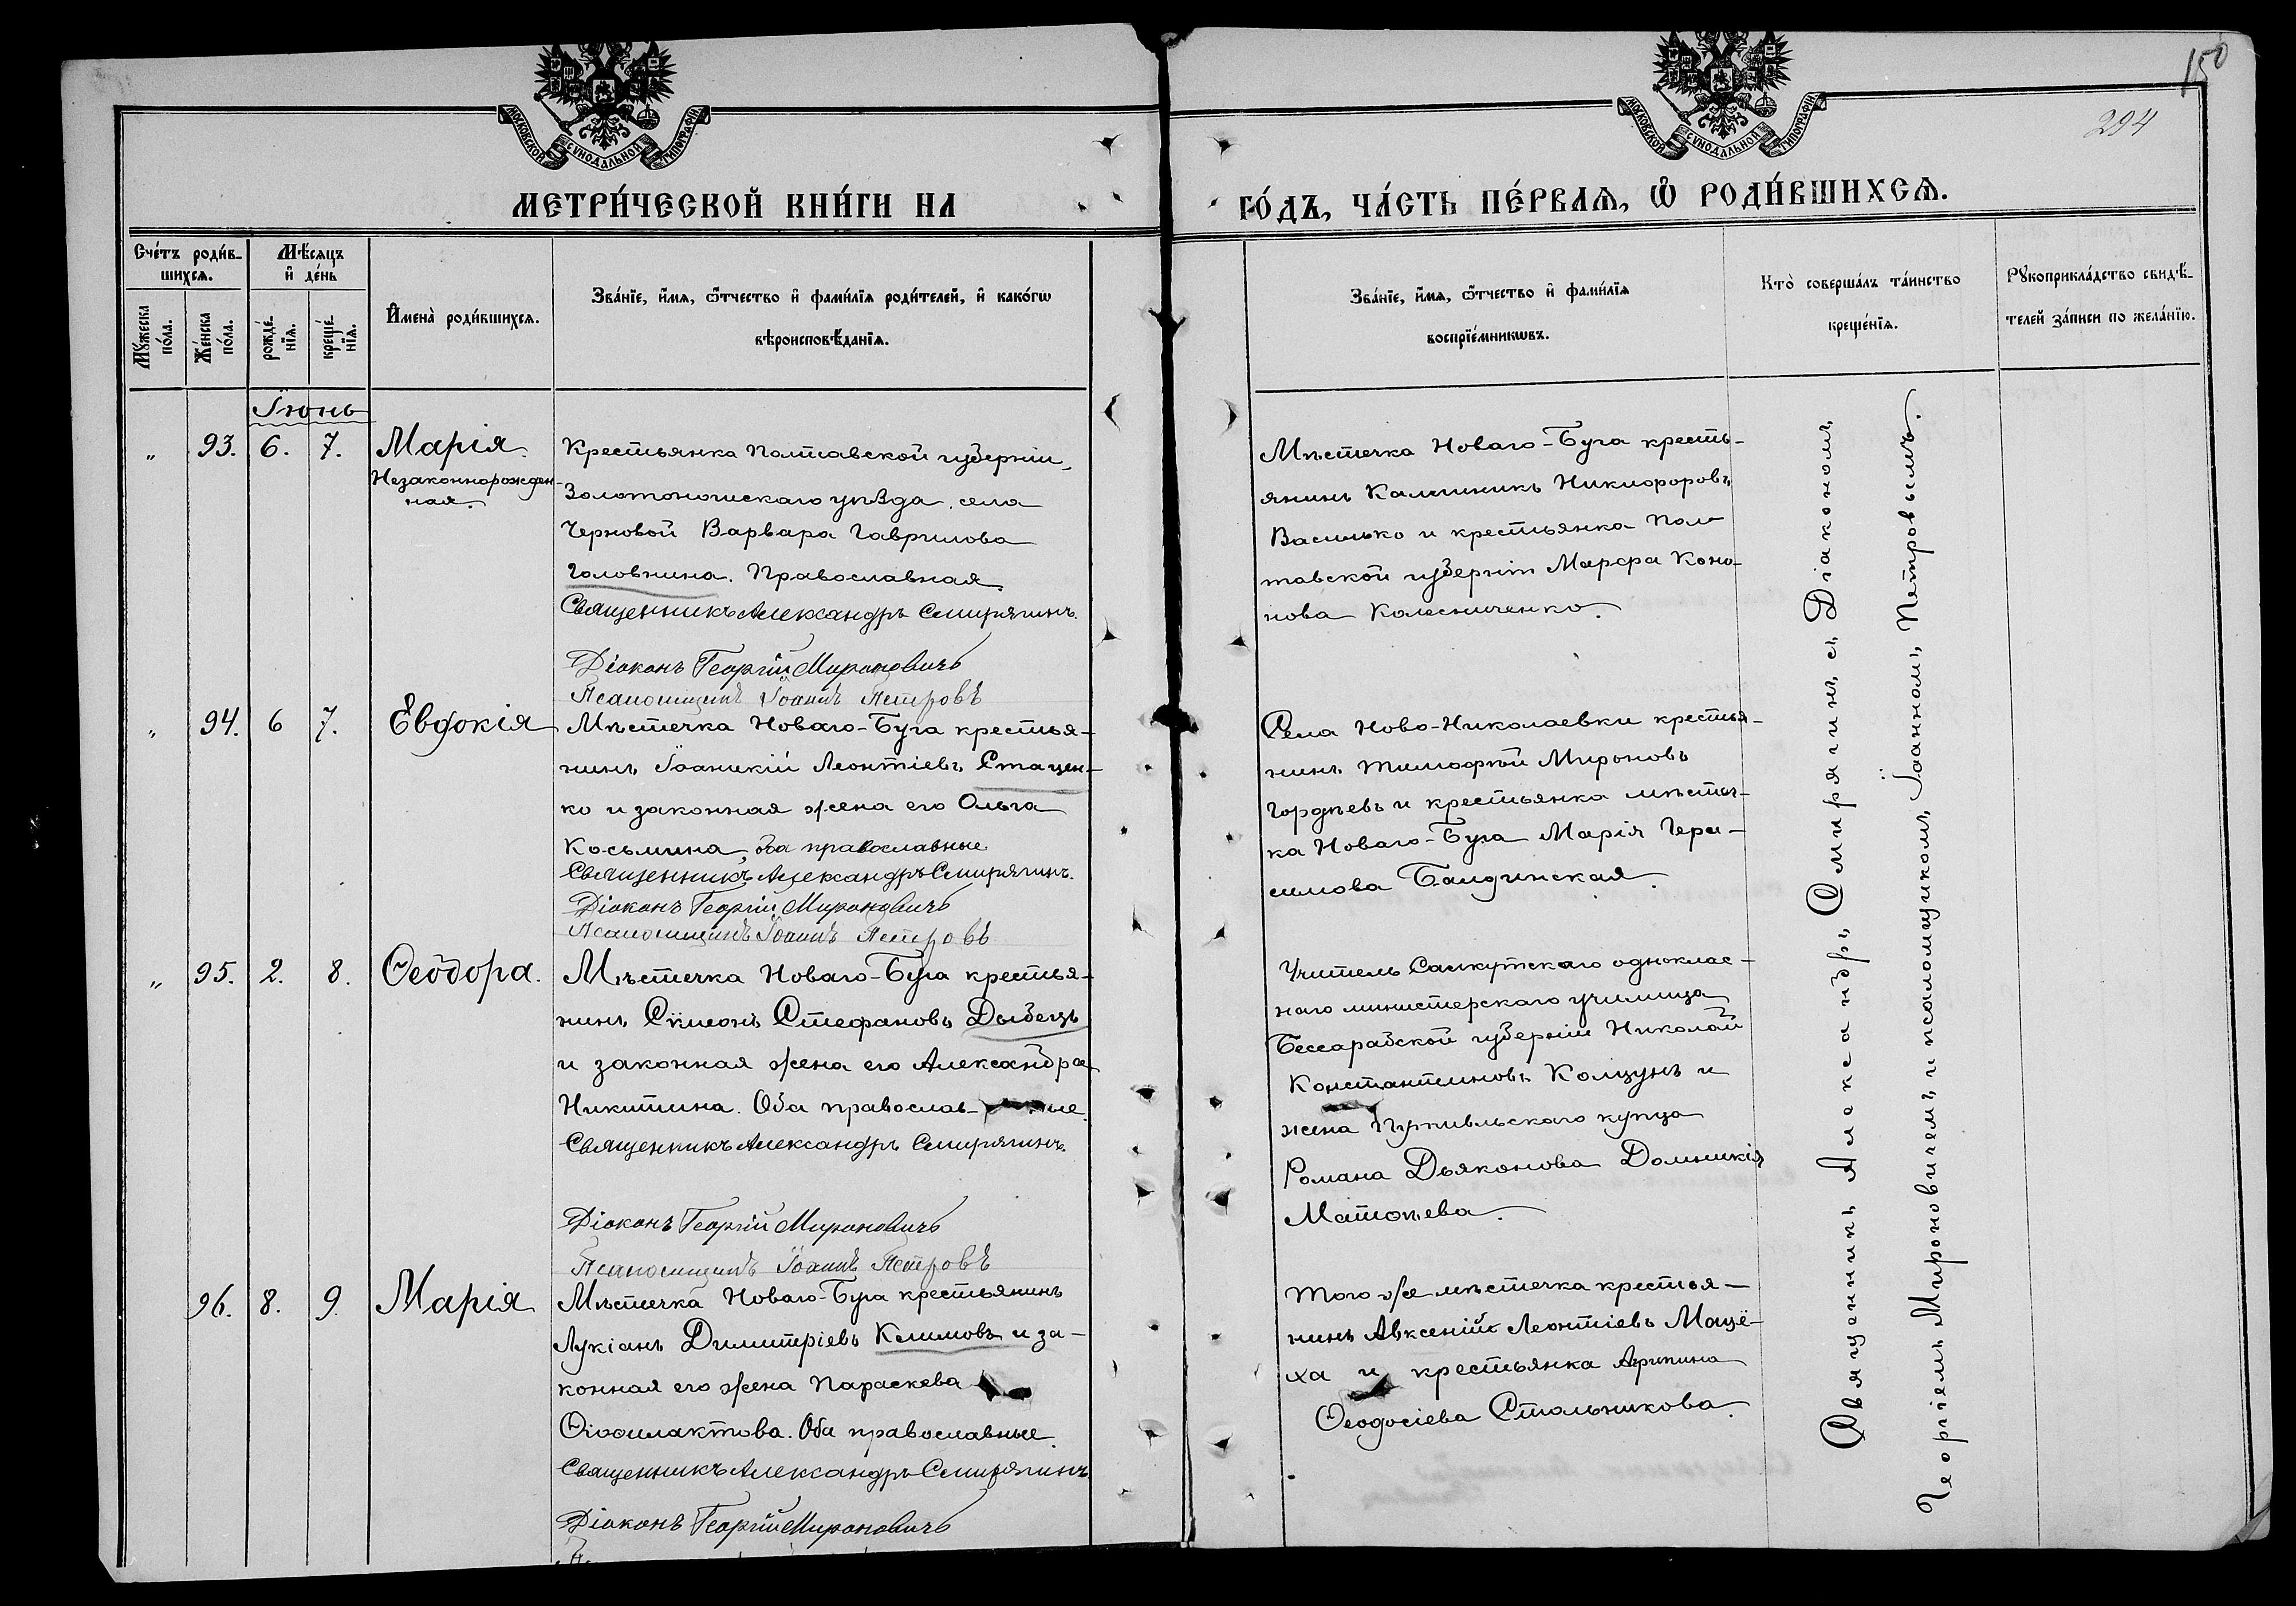 150
294
МОСКОВСКОЙ СѴНОДАЛЬНОЙ ТИПОГРАФІИ
МОСКОВСКОЙ СѴНОДАЛЬНОЙ ТИПОГРАФІИ
МЕТРИ́ЧЕСКОЙ КНИ́ГИ НА
ГО́ДЪ, ЧА́СТЬ ПЕ́РВАѦ, Ѽ РОДИ́ВШИХСѦ.
Сче́тъ роди́в-
шихсѧ.
Мꙋ́жеска по́ла.
Же́нска по́ла.
Мѣ́сѧцъ
и҆ де́нь
рожде́-
нїѧ.
креще́-
нїѧ.
И҆мена̀ роди́вшихсѧ.
Зва́нїе, и҆́мѧ, ѻ҆́тчество и҆ фами́лїѧ роди́телей, и҆ како́гѡ
вѣроисповѣ́данїѧ.
Зва́нїе, и҆́мѧ, ѻ҆́тчество и҆ фами́лїѧ
воспрїе́мникѡвъ.
Кто̀ соверша́лъ та́инство
креще́нїѧ.
Рꙋкоприкла́дство свидѣ́-
телей за́писи по жела́нїю.
Іюнь
„ 93. 6. 7. Марія
Незаконнорожден-
ная.
Крестьянка Полтавской губерніи,
Золотоношскаго уѣзда, села
Черновой Варвара Гаврилова
Головнина. Православная
Священникъ Александръ Смирягинъ.
Діаконъ Георгій Мироновичъ
Псаломщикъ Іоаннъ Петровъ
Мѣстечка Новаго-Буга кресть-
янинъ Каллиникъ Никифоровъ
Василько и крестьянка Пол-
тавской губерніи Марфа Коно-
нова Колесниченко.
„ 94. 6 7. Евдокія
Мѣстечка Новаго-Буга крестья-
нинъ Іоанникій Леонтіевъ Стацен-
ко и законная жена его Ольга
Косьмина, оба православные
Священникъ Александръ Смирягинъ.
Діаконъ Георгій Мироновичъ
Псаломщикъ Іоаннъ Петровъ
Села Ново-Николаевки крестья-
нинъ Тимофѣй Мироновъ
Гордѣевъ и крестьянка мѣстеч-
ка Новаго-Буга Марія Гера-
симова Балдинская.
„ 95. 2. 8. Ѳеодора.
Мѣстечка Новаго-Буга крестья-
нинъ Сѵмеонъ Стефановъ Дыбецъ
и законная жена его Александра
Никитина. Оба православ-ные.
Священникъ Александръ Смирягинъ.
Діаконъ Георгій Мироновичъ
Псаломщикъ Іоаннъ Петровъ
Учитель Салкутскаго одноклас-
наго министерскаго училища
Бессарабской губерніи Николай
Константиновъ Колцунъ и
жена Путивльскаго купца
Романа Дьяконова Домникія
Матѳеева.
96. 8. 9. Марія
Мѣстечка Новаго-Буга крестьянинъ
Лукіанъ Димитріевъ Климовъ и за-
конная его жена Параскева
Ѳеофилактова. Оба православные.
Священникъ Александръ Смирягинъ
Діаконъ Георгій Мироновичъ
Того же мѣстечка крестья-
нинъ Авксеній Леонтіевъ Мацё-
ха и крестьянка Агрипина
Ѳеодосіева Стольникова.
Священникъ Александръ Смирягинъ съ Діакономъ
Георгіемъ Мироновичемъ и псаломщикомъ Іоанномъ Петровымъ.